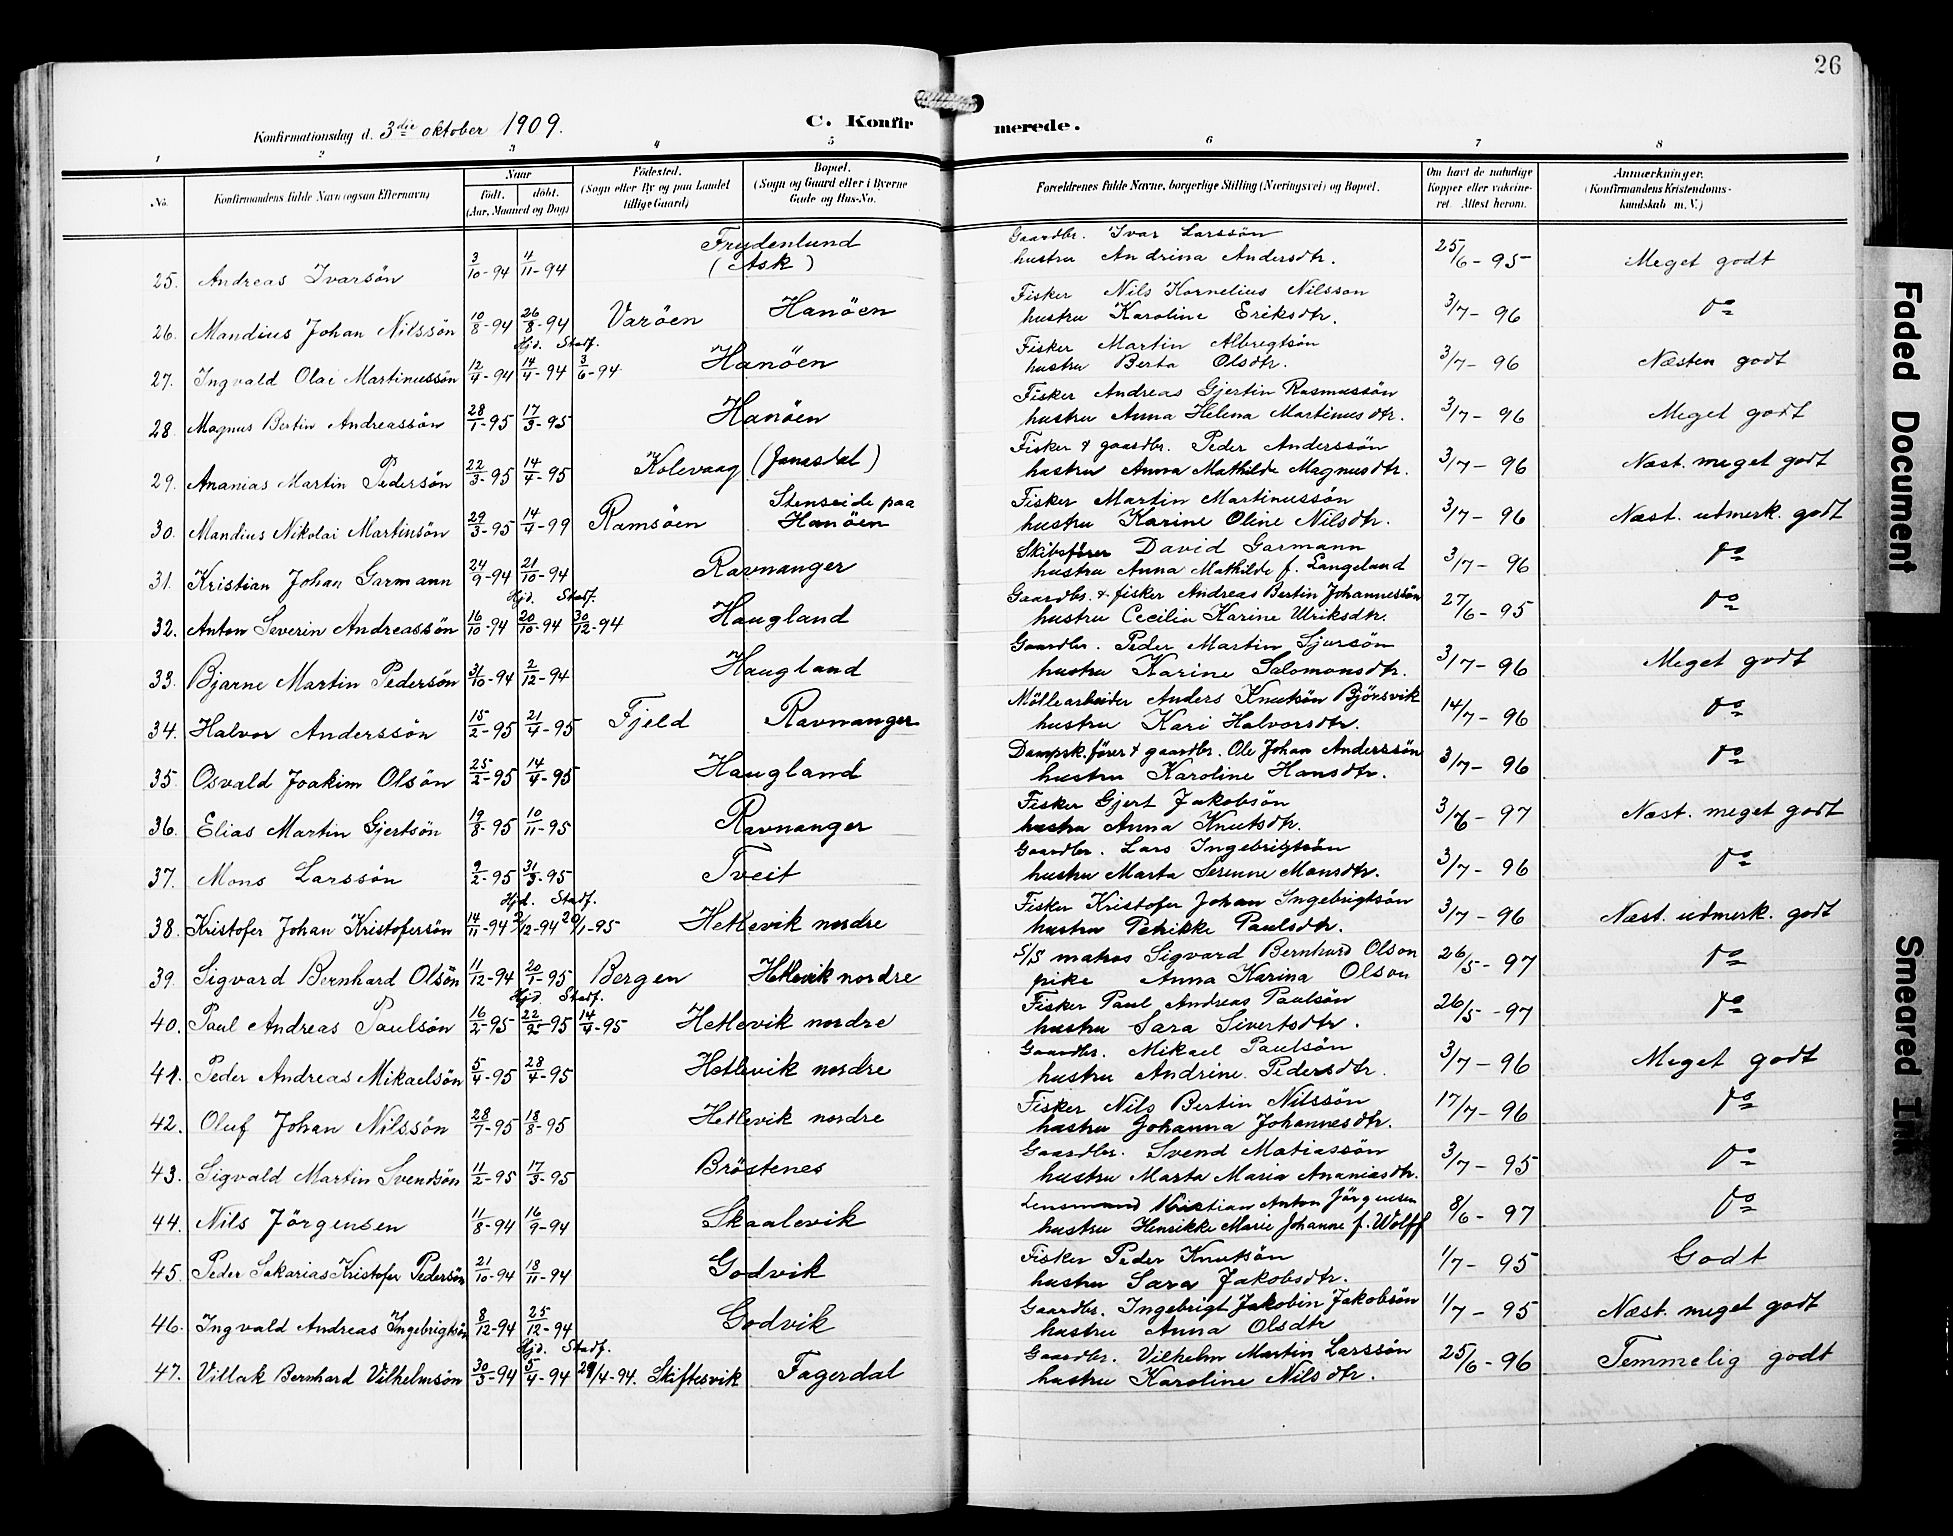 26
Konfirmationsdag d. 3die oktober 1909.
C. Konfirmerede.
1 2 3 4 5 6 7 8
No. Konfirmandens fulde Navn (ogsaa Efternavn) Naar født. døbt. (Aar, Maaned og Dag) Fødested. (Sogn eller By og paa Landet tillige Gaard) Bopæl. (Sogn og Gaard eller i Byerne Gade og Hus-No. Forældrenes fulde Navne, borgerlige Stilling (Næringsvei) og Bopæl. Om havt de naturlige Kopper eller vakcineret. Attest herom. Anmærkninger. (Konfirmandens Kristendomskundskab m. V.)
25. Andreas Ivarsön 3/10-94 4/11-94 Frydenlund (Ask) Gaardbr. Ivar Larssön hustru Andrina Andersdtr. 25/6-95 Meget godt
26. Mandius Johan Nilssön 10/8-94 26/8-94 Varöen Hanöen Fisker Nils Kornelius Nilsson hustru Karoline Eriksdtr. 3/7-96 do
27. Ingvald Olai Martinussön 12/4-94 Hjd. 14/4-94 Stadf. 3/6-94 Hanöen Fisker Martin Albregtsön hustru Berta Olsdtr. 3/7-96 Næsten godt
28. Magnus Bertin Andreassön 28/1-95 17/3-95 Hanöen Fisker Andreas Gjertin Rasmussön hustru Anna Helena Martinusdtr. 3/7-96 Meget godt
29. Ananias Martin Pedersön 22/3-95 14/4-95 Kolevaag (Janusdal) Fisker & gaardbr. Peder Anderssön hustru Anna Mathilde Magnusdtr. 3/7-96 Næst. meget godt
30. Mandius Nikolai Martinsön 29/3-95 14/4-99 Ramsöen Stenseide paa Hanöen Fisker Martin Martinussön hustru Karine Oline Nilsdtr. 3/7-96 Næst. udmerk. godt
31. Kristian Johan Garmann 24/9-94 21/10-94 Ravnanger Skibsfører David Garmann hustru Anna Mathilde f. Langeland 3/7-96 do
32. Anton Severin Andreassön 16/10-94 Hjd. 20/10-94 Stadf. 30/12-94 Haugland Gaardbr. & fisker Andreas Bertin Johannessön hustru Cecilia Karine Ulriksdtr. 27/6-95 do
33. Bjarne Martin Pedersön 31/10-94 2/12-94 Haugland Gaardbr. Peder Martin Sjursön hustru Karine Salomonsdtr. 3/7-96 Meget godt
34. Halvor Anderssön 15/2-95 21/4-95 Fjeld Ravnanger Møllearbeider Anders Knutsön Björsvik hustru Kari Halvorsdtr. 14/7-96 do
35. Osvald Joakim Olsön 25/2-95 14/4-95 Haugland Dampsk.fører & gaardbr. Ole Johan Anderssön hustru Karoline Hansdtr. 3/7-96 do
36. Elias Martin Gjertsön 19/8-95 10/11-95 Ravnanger Fisker Gjert Jakobsön hustru Anna Knutsdtr. 3/6-97 Næst. meget godt
37. Mons Larssön 9/2-95 31/3-95 Tveit Gaardbr. Lars Ingebrigtsön hustru Marta Serenne Monsdtr. 3/7-96 do
38. Kristofer Johan Kristofersön 14/11-94 Hjd. 2/12-94 Stadf. 20/1-95 Hetlevik nordre Fisker Kristofer Johan Ingebrigtsön hustru Petrikke Paulsdtr. 3/7-96 Næst. udmerk. godt
39. Sigvard Bernhard Olsön 11/12-94 20/1-95 Bergen Hetlevik nordre S/S matros Sigvard Bernhard Olson pike Anna Karina Olson 26/5-97 do
40. Paul Andreas Paulsön 16/2-95 Hjd. 22/2-95 Stadf. 14/4-95 Hetlevik nordre Fisker Paul Andreas Paulsön hustru Sara Sivertsdtr. 26/5-97 do
41. Peder Andreas Mikaelsön 5/4-95 28/4-95 Hetlevik nordre Gaardbr. Mikael Paulsön hustru Andrine Pedersdtr. 3/7-96 Meget godt
42. Oluf Johan Nilssön 28/7-95 18/8-95 Hetlevik nordre Fisker Nils Bertin Nilssön hustru Johanna Johannesdtr. 17/7-96 do
43. Sigvald Martin Svendsön 11/2-95 17/3-95 Bröstenes Gaardbr. Svend Matiassön hustru Marta Maria Ananiasdtr. 3/7-95 do
44. Nils Jörgensen 11/8-94 16/9-94 Skaalevik Lensmand Kristian Anton Jörgensen hustru Henrikke Marie Johanne f. Wolff 8/6-97 do
45. Peder Sakarias Kristofer Pedersön 21/10-94 18/11-94 Godvik Fisker Peder Knutsön hustru Sara Jakobsdtr. 1/7-95 Godt
46. Ingvald Andreas Ingebrigtsön 8/12-94 25/12-94 Godvik Gaardbr. Ingebrigt Jakobin Jakobsön hustru Anna Olsdtr 1/7-95 Næst. meget godt
47. Villak Bernhard Vilhelmsön 30/3-94 Hjd. 5/4-94 Stadf. 29/4-94. Skiftesvik Fagerdal Gaardbr. Vilhelm Martin Larssön hustru Karoline Nilsdtr. 25/6-96 Temmelig godt
Faded Document
Smeared Ink